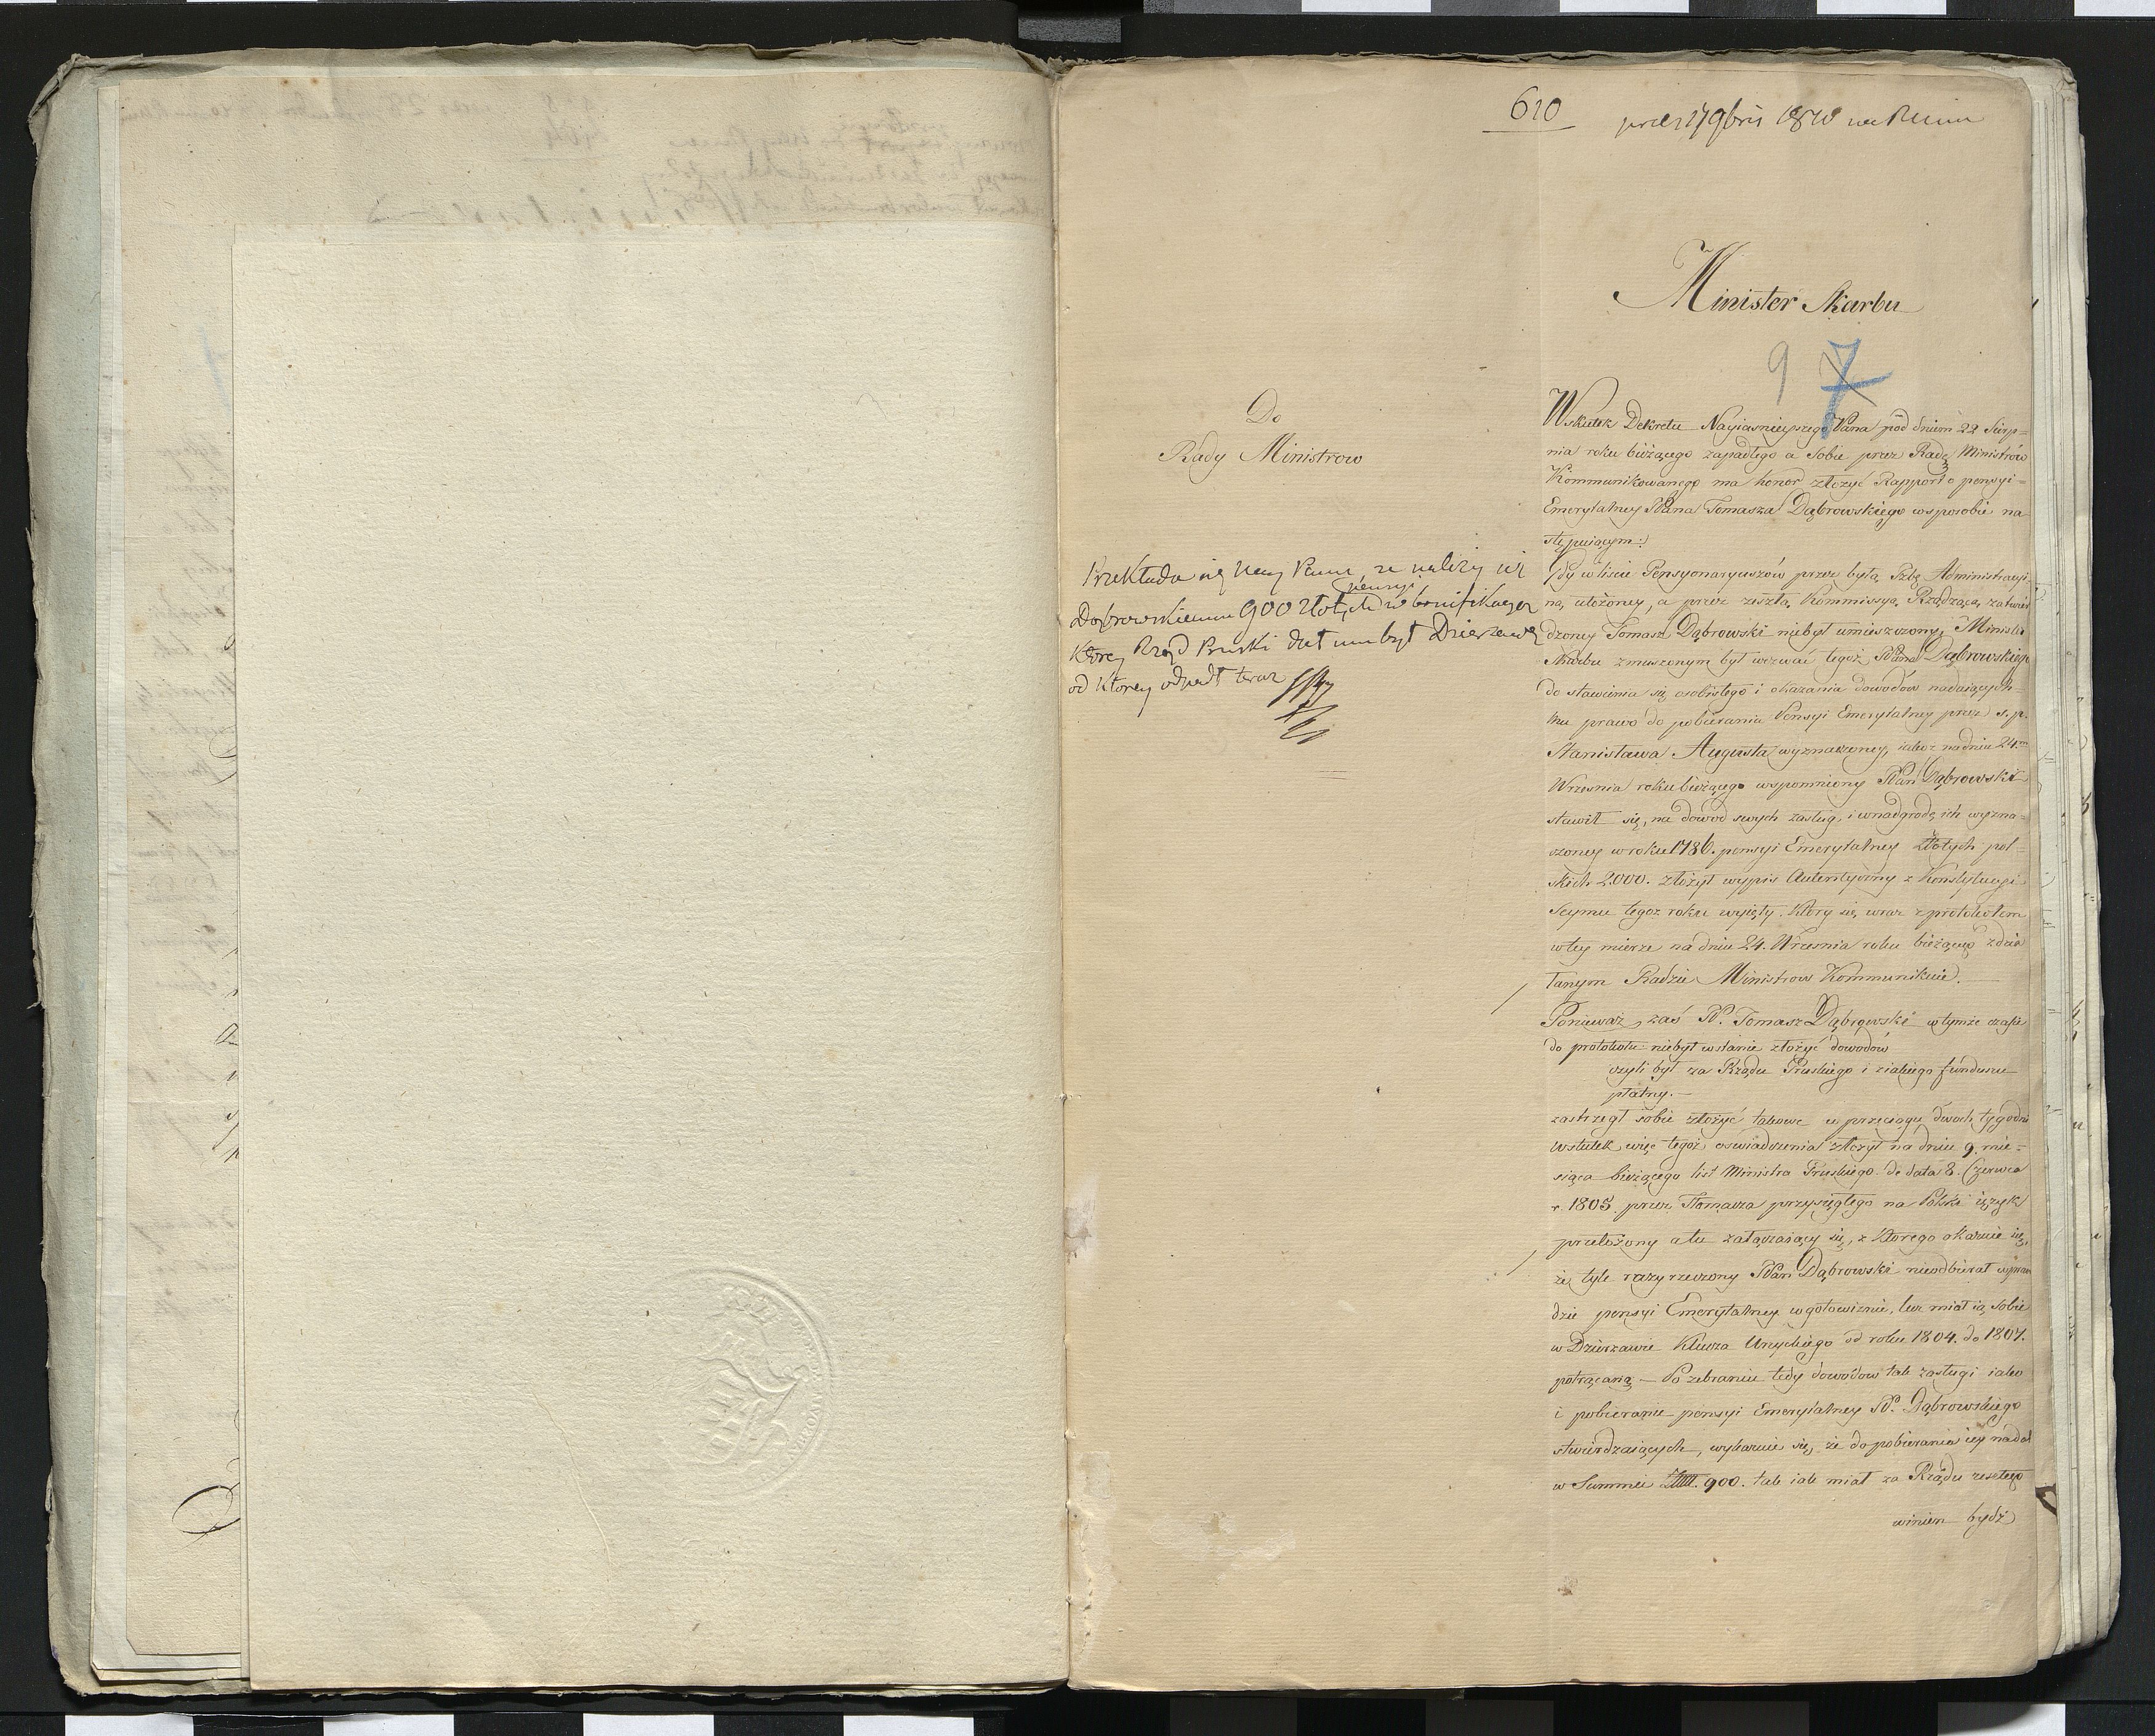 610
Minister Skarbu
9 7
Do
Rady Ministrow
Przekłada się Nay Panu, że należy się
pensyi
Dąbrowskiemu 900 złotych w bonifikacyi
którey Rząd Pruski dał mu był Dzierżawę
od którey odpadł teraz
Wskutek Dekretu Nayiasnieyszego Pana pod dniem 22 Sierp=
nia roku bieżącego zapadłego a Sobie przez Radę Ministrów
Kommunikowanego ma honor złożyć Rapport o pensyi=
Emerytalney JPana Tomasza Dąbrowskiego w sposobie na
stępuiącym:
Gdy w liscie Pensyonaryuszów przez byłą Izbę Administracyi
ną ułożoney, a przez zeszłą Kommissyą Rządzącą zatwier
dzoney Tomasz Dąbrowski niebył umieszczony, Minister
Skarbu zmuszonym był wezwać tegoż JPana Dąbrowskiego
do stawienia się osobistego i okazania dowodów nadaiących
mu prawo do pobierania Pensyi Emerytalney przez s. p.
Stanisława Augusta wyznaczoney, iakoż na dniu 24m
Wrzesnia roku bieżącego wspomniony JPan Dąbrowski
stawił się, na dowód swych zasług, i w nadgrodę ich wyzna=
czoney w roku 1786. pensyi Emerytalney Złotych pol=
skich 2000. złożył wypis Autentyczny z Konstytucyi
Seymu tegoż roku wyięty. Który się wraz z protokołem
w tey mierze na dniu 24. Wrzesnia roku bieżącego zdzia
łanym Radzie Ministrow Kommunikuie.
Ponieważ zaś JP. Tomasz Dąbrowski w tymże czasie
do protokołu niebył w stanie złożyć dowodów
czyli był za Rządu Pruskiego i z iakiego funduszu
płatny.—
zastrzegł sobie złożyć takowe w przeciągu dwoch tygodni
wskutek więc tegoż oswiadczenia złożył na dniu 9. mie=
siąca bieżącego list Ministra Pruskiego de data 8. Czerwca
r. 1805. przez Tłomacza przysięgłego na Polski ięzyk
przełożony a tu załączaiący się, z którego okazuie się,
że tyle razy rzeczony JPan Dąbrowski nieodbierał wpraw
dzie pensyi Emerytalney w gotowiznie, lecz miał ią sobie
w Dzierżawie Klucza od roku 1804. do 1807.
potrącaną — Po zebraniu tedy dowodow tak zasługi iako
i pobieranie pensyi Emerytalney JP. Dąbrowskiego
stwierdzaiących, wykazuie się, że do pobierania iey nadal
w Summie 900. tak iak miał za Rządu zeszłego
winien bydź